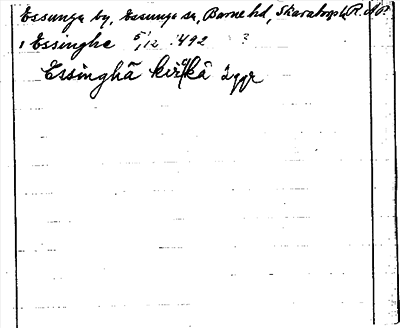 Essunga by, Essunga sn, Barne hd, Skaraborgs l. R.A.P.
i Essinghe 5/12 1492 ?
Essinghä kirkä 2 ggr